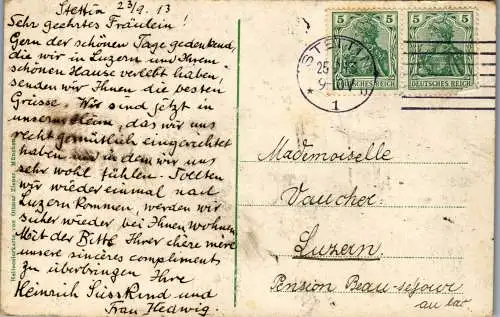 Stettin 23/9. 13
Sehr geehrtes Fräulein!
Gern der schönen Tage gedenkend,
die wir in Luzern und Ihrem
schönen Hause verlebt haben,
senden wir Ihnen die besten
Grüsse. Wir sind jetzt in
unserm Heim, das wir uns
recht gemütlich eingerichtet
haben und in dem wir uns
sehr wohl fühlen. Sollten
wir wieder einmal nach
Luzern kommen, werden wir
sicher wieder bei Ihnen wohnen
Mit der Bitte Ihrer chère mère
unsere sincères complement
zu überbringen Ihre
Heinrich Süsskind und
Frau Hedwig.
5 5
DEUTSCHES REICH
5 5
DEUTSCHES REICH
STETTIN
25
9-10V
* 1
Mademoiselle
Vaucher
Luzern
Pension Beau-séjour
au lac